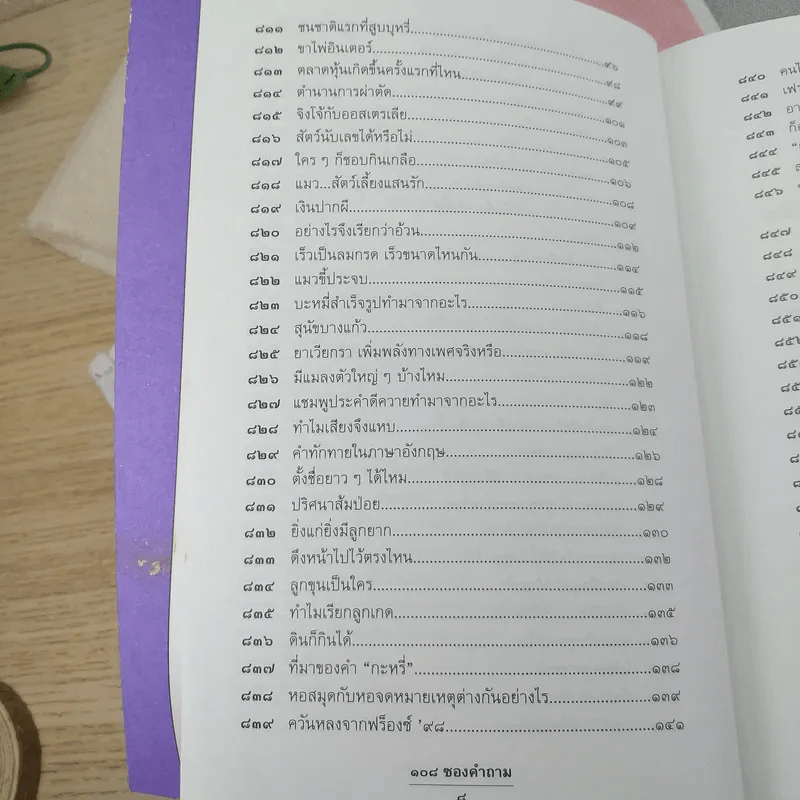 ๘๑๑ ชนชาติแรกที่สูบบุหรี่................๙๖
๘๑๒ ขาไพ่อินเตอร์................๙๘
๘๑๓ ตลาดหุ้นเกิดขึ้นครั้งแรกที่ไหน................๙๙
๘๑๔ ตำนานการผ่าตัด................๑๐๑
๘๑๕ จิงโจ้กับออสเตรเลีย................๑๐๓
๘๑๖ สัตว์นับเลขได้หรือไม่................๑๐๕
๘๑๗ ใคร ๆ ก็ชอบกินเกลือ................๑๐๖
๘๑๘ แมว...สัตว์เลี้ยงแสนรัก................๑๐๘
๘๑๙ เงินปากผี................๑๐๙
๘๒๐ อย่างไรจึงเรียกว่าอ้วน................๑๑๒
๘๒๑ เร็วเป็นลมกรด เร็วขนาดไหนกัน................๑๑๔
๘๒๒ แมวขี้ประจบ................๑๑๕
๘๒๓ บะหมี่สำเร็จรูปทำมาจากอะไร................๑๑๖
๘๒๔ สุนัขบางแก้ว................๑๑๘
๘๒๕ ยาเวียกรา เพิ่มพลังทางเพศจริงหรือ................๑๑๙
๘๒๖ มีแมลงตัวใหญ่ ๆ บ้างไหม................๑๒๒
๘๒๗ แชมพูประคำดีควายทำมาจากอะไร................๑๒๓
๘๒๘ ทำไมเสียงจึงแหบ................๑๒๔
๘๒๙ คำทักทายในภาษาอังกฤษ................๑๒๖
๘๓๐ ตั้งชื่อยาว ๆ ได้ไหม................๑๒๘
๘๓๑ ปริศนาส้มป่อย................๑๒๙
๘๓๒ ยิ่งแก่ยิ่งมีลูกยาก................๑๓๐
๘๓๓ ดึงหน้าไปไว้ตรงไหน................๑๓๒
๘๓๔ ลูกขุนเป็นใคร................๑๓๓
๘๓๕ ทำไมเรียกลูกเกด................๑๓๕
๘๓๖ ดินก็กินได้................๑๓๖
๘๓๗ ที่มาของคำ “กะหรี่”................๑๓๘
๘๓๘ หอสมุดกับหอจดหมายเหตุต่างกันอย่างไร................๑๓๙
๘๓๙ ควันหลงจากฟร็องซ์ ’๙๘................๑๔๑
๑๐๘ ซองคำถาม
๘๔๐
๘๔๑
๘๔๒
๘๔๓
๘๔๔
๘๔๕
๘๔๖
๘๔๗
๘๔๘
๘๔๙
๘๕๐